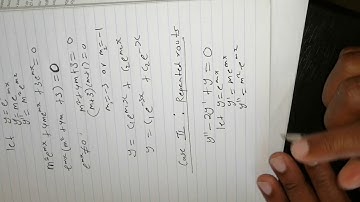 let y = e^mx
y' = me^mx
y'' = m²e^mx
m²e^mx + 4me^mx + 3e^mx = 0
e^mx(m² + 4m + 3) = 0
e^mx ≠ 0 : m² + 4m + 3 = 0
(m+3)(m+1) = 0
m = -3 or m = -1
y = C₁e^m₁x + C₂e^m₂x
y = C₁e^-3x + C₂e^-x
Case II : Repeated roots
y'' - 2y' + y = 0
let y = e^mx
y' = me^mx
y'' = m²e^mx